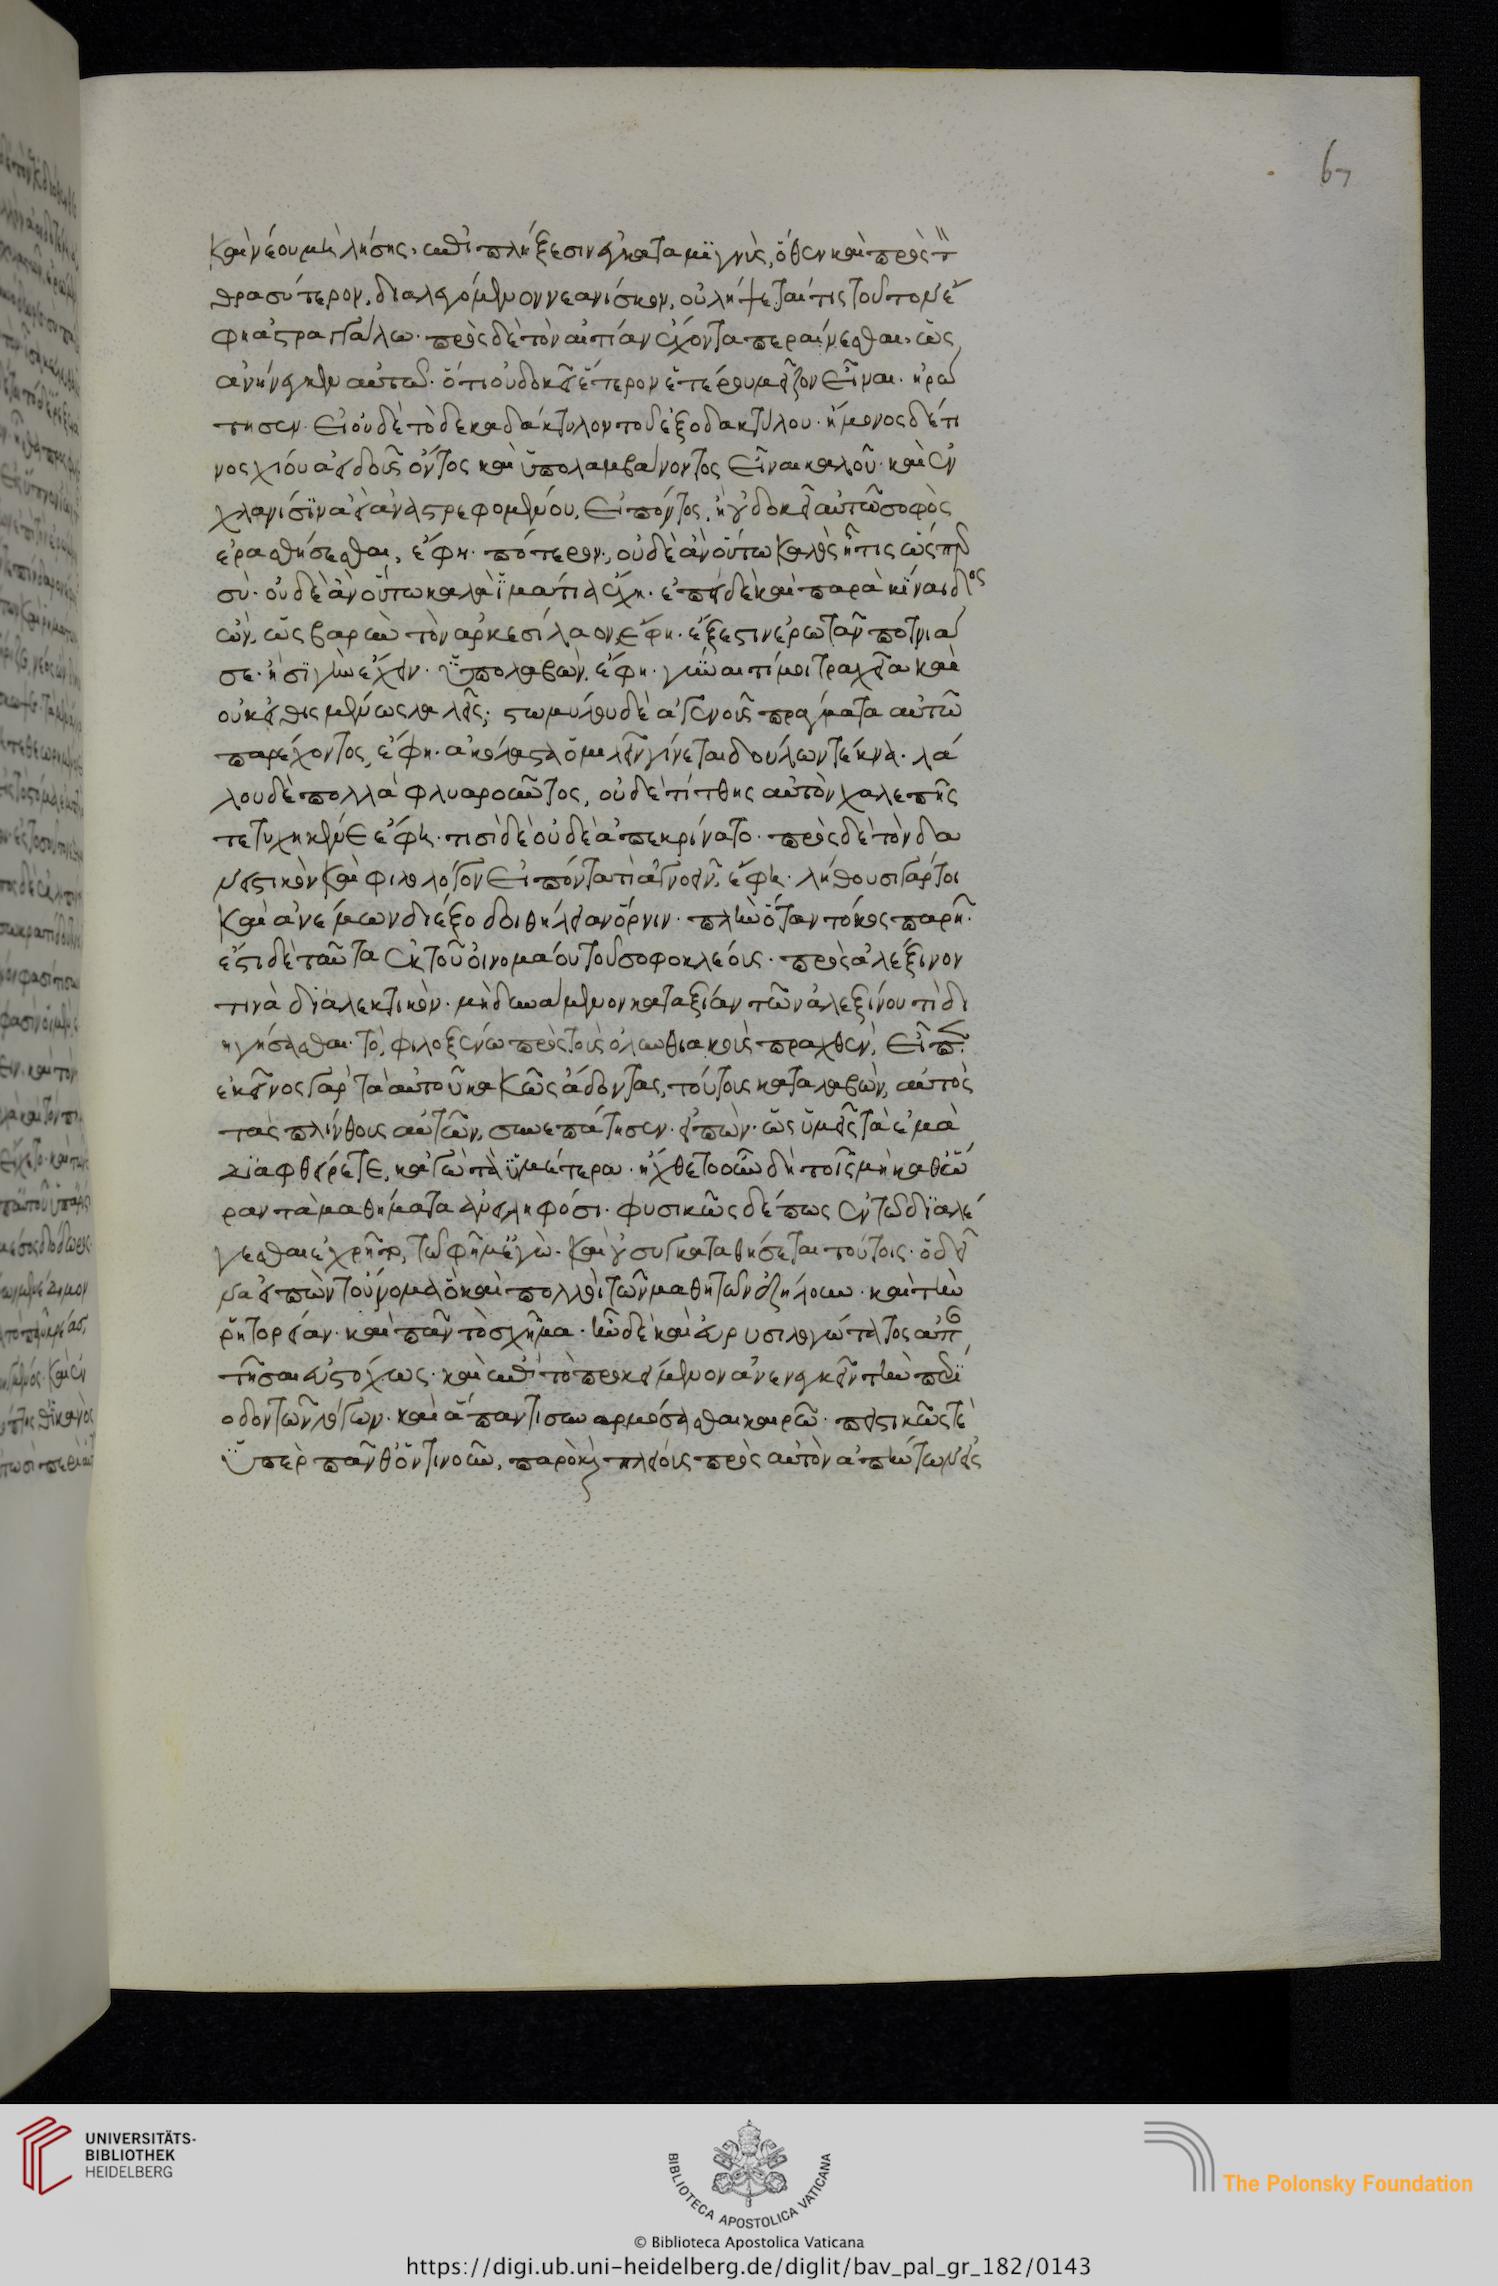 καὶ νέου μὴ λήσης, ἐπιπλήξεσιν ἐγκαταμϊγνὺς, ὅθεν καὶ πρὸς τ̏
θρασύτερον, διαλεγόμενον νεανίσκον, οὐ λήψεταί τις τοῦτον ἔ
φη ἀστραγάλω· πρὸς δὲ τὸν αἰτίαν ἔχοντα περαίνεσθαι, ὡς
ἀνήνεγκεν αὐτῶ· ὅτι οὐ δοκεῖ ἕτερον ἑτέρου μεῖζον εἶναι· ἠρώ
τησεν· εἰ οὐδὲ τὸ δεκαδάκτυλον τοῦ ἐξοδακτύλου· ἥμονος δέ τι
νος χίου ἀειδοῦς ὄντος καὶ ὑπολαμβάνοντος εἶναι καλοῦ· καὶ ἐν
χλανισίϊν ἀεὶ ἀναστρεφομένου, εἰπόντος, δοκεῖ αὐτῶ σοφὸς
ἐρασθήσεσθαι, ἔφη· πότερον, οὐδὲ ἂν οὕτω καλὸς ἦ τις ὥσπερ
σύ· οὐδὲ ἂν οὕτω καλὰ ἱμάτια ἔχη· ἐπεὶ δὲ καὶ παρὰ κίναιδος
ὢν, ὡς βαρὺν τὸν ἀρκεσίλαον, ἔφη· ἔξεστιν ἐρωτᾶν πότνιά
σε· ἢ σιγὴν ἔχειν· ὑπολαβὼν, ἔφη· γύναι τί μοι τραχεῖα καὶ
οὐκ εἰθισμένως λαλεῖς; στωμύλου δὲ ἀγενοῦς πράγματα αὐτῶ
παρέχοντος, ἔφη· ἀκόλαστα ὁμιλεῖν γίνεται δούλων τέκνα· λά
λου δὲ πολλὰ φλυαροῦντος, οὐδὲ τίτθης αὐτὸν χαλεπῆς
τετυχηκέναι ἔφη· τισὶ δὲ οὐδὲ ἀπεκρίνατο· πρὸς δὲ τὸν δα
νειστικὸν καὶ φιλολόγον εἰπόντα τι ἀγνοεῖν, ἔφη· λήθουσι γάρ τοι
καὶ ἀνέμων διέξοδοι θήλειαν ὄρνιν· πλὴν ὅταν τόκος παρῆ·
ἔστι δὲ ταῦτα ἐκ τοῦ οἰνομάου τοῦ σοφοκλέους· πρὸς ἀλεξῖνον
τινὰ διαλεκτικὸν· μὴ δυνάμενον κατ' αξίαν τῶν ἀλεξίνου τί δι
ηγήσασθαι· τὸ, φιλοξένω πρὸς τοὺς ὀλυνθιακοὺς πραχθὲν, εἶπε·
ἐκεῖνος γὰρ τὰ αὐτοῦ κακῶς ἄδοντας, τούτους καταλαβὼν, αὐτὸς
τὰς πλίνθους αὐτῶν, συνεπάτησεν· εἰπὼν· ὡς ὑμεῖς τὰ ἐμὰ
διαφθείρετε, κἀγὼ τὰ ὑμέτερα· ἤχθετο οὖν δὴ τοῖς μὴ καθ' ὥ
ραν τὰ μαθήματα ἀνειληφόσι· φυσικῶς δέ πως ἐν τῶ διαλέ
γεσθαι ἐχρῆτο, τῶ φημ' ἐγὼ· καὶ οὐ συγκαταθήσεται τούτοις· ὁ δεῖ
να εἰπὼν τοὔνομα, ὃ καὶ πολλοὶ τῶν μαθητῶν ἐζήλουν· καὶ τὴν
ῥητορείαν· καὶ πᾶν τὸ σχῆμα· ἦν δὲ καὶ εὑρεσιλογώτατος ἀπαν
τῆσαι εὐστόχως· καὶ ἐπὶ τὸ προκείμενον ἀνενεγκεῖν τὴν περί
οδον τῶν λόγων· καὶ ἅπαντι συναρμόσασθαι καιρῶ· πειστικῶς τὲ
ὑπὲρ πᾶνθ' ὁντινοῦν, παρὸ καὶ πλείους πρὸς αὐτὸν ἀπήντων εἰς
67
UNIVERSITÄTS-
BIBLIOTHEK
HEIDELBERG
BIBLIOTECA APOSTOLICA VATICANA
The Polonsky Foundation
© Biblioteca Apostolica Vaticana
https://digi.ub.uni-heidelberg.de/diglit/bav_pal_gr_182/0143